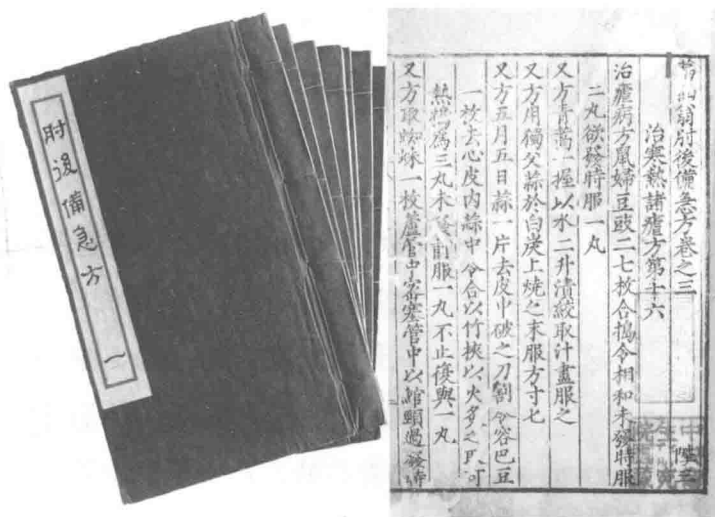 肘後備急方 一
葛仙翁肘後備急方卷之三
治寒熱諸瘧方第十六
治瘧病方鼠婦豆豉二七枚合搗令相和未發時服
二丸欲發時服一丸
又方青蒿一握以水二升漬絞取汁盡服之
又方用獨父蒜於白炭上燒之末服方寸匕
又方五月五日蒜一片去皮中破之刀割令容巴豆
一枚去心皮內蒜中令合以竹挾以火炙之取可
熱搗為三丸未發前服一丸不止復與一丸
又方取蜘蛛一枚蘆管中密塞管中以綰頸過發時